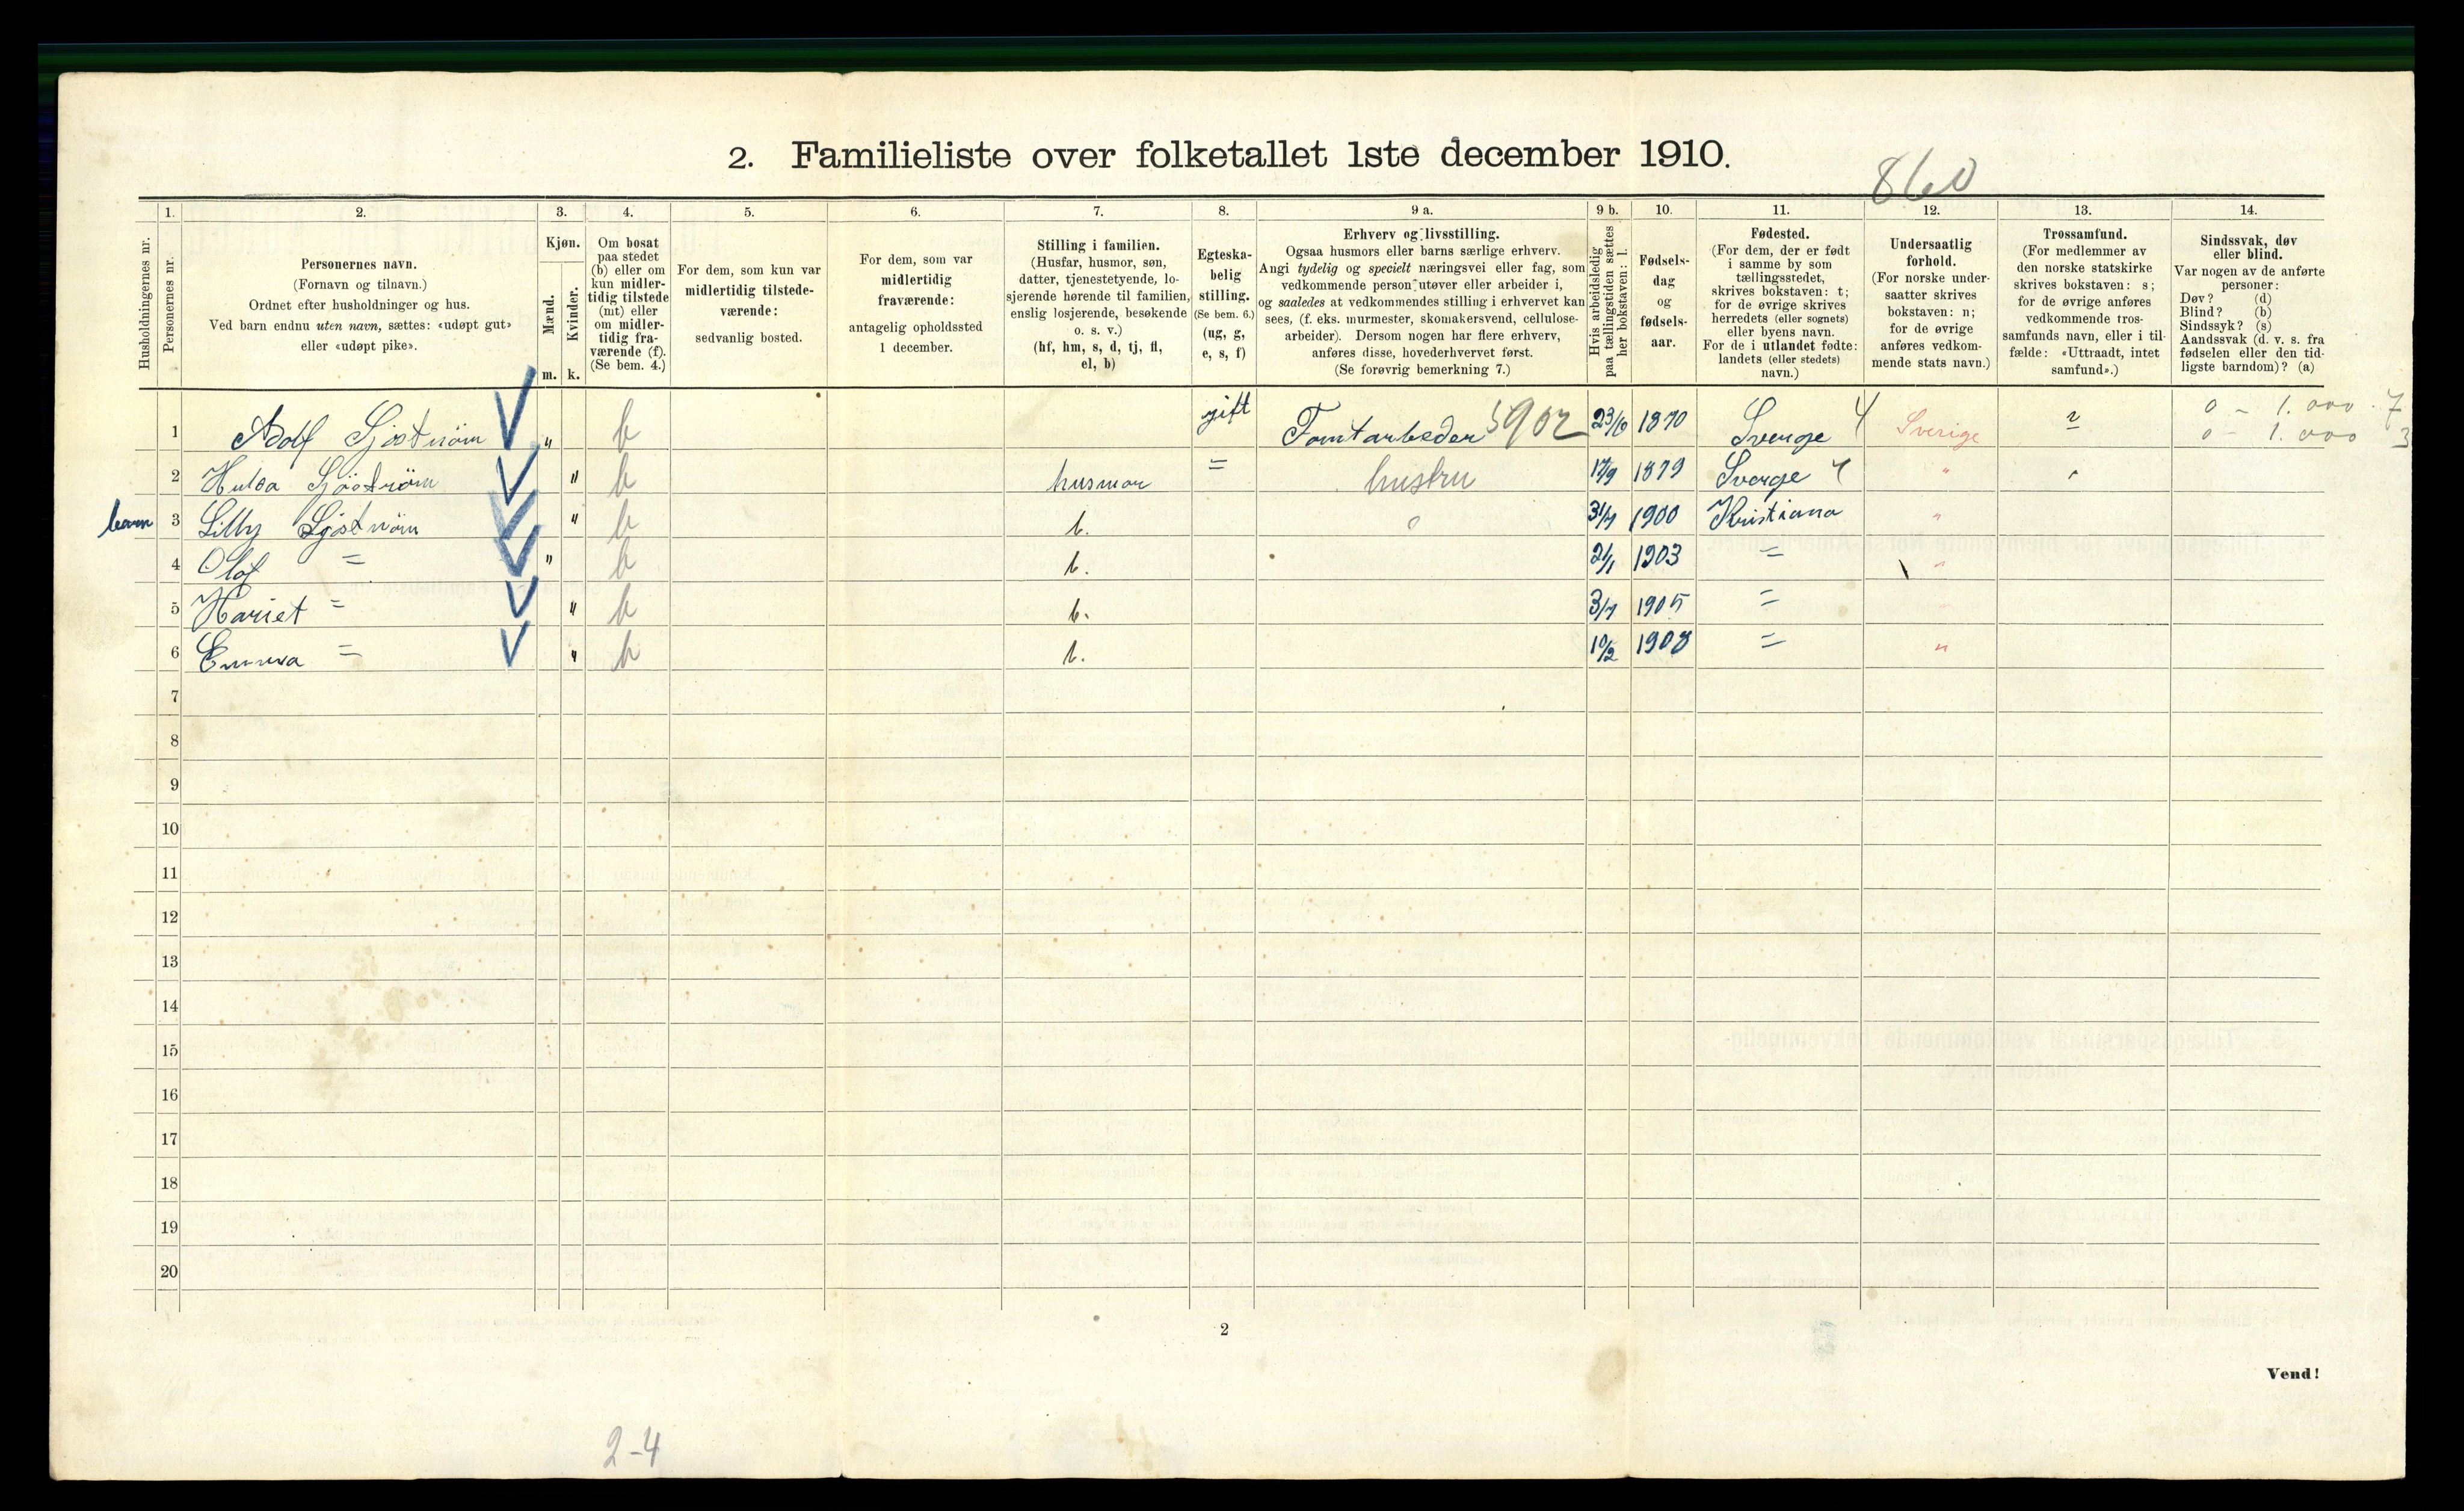 2. Familieliste over folketallet 1ste december 1910.
860
1. 2. 3. 4. 5. 6. 7. 8. 9 a. 9 b. 10. 11. 12. 13. 14.
Husholdningernes nr.
Personernes nr.
Personernes navn.
(Fornavn og tilnavn.)
Ordnet efter husholdninger og hus.
Ved barn endnu uten navn, sættes: «udøpt gut»
eller «udøpt pike».
Kjøn.
Mænd.
Kvinder.
m. k.
Om bosat
paa stedet
(b) eller om
kun midler-
tidig tilstede
(mt) eller
om midler-
tidig fra-
værende (f).
(Se bem. 4.)
For dem, som kun var
midlertidig tilstede-
værende:
sedvanlig bosted.
For dem, som var
midlertidig
fraværende:
antagelig opholdssted
1 december.
Stilling i familien.
(Husfar, husmor, søn,
datter, tjenestetyende, lo-
sjerende hørende til familien,
enslig losjerende, besøkende
o. s. v.)
(hf, hm, s, d, tj, fl,
el, b)
Egteska-
belig
stilling.
(Se bem. 6.)
(ug, g,
e, s, f)
Erhverv og livsstilling.
Ogsaa husmors eller barns særlige erhverv.
Angi tydelig og specielt næringsvei eller fag, som
vedkommende person utøver eller arbeider i,
og saaledes at vedkommendes stilling i erhvervet kan
sees, (f. eks. murmester, skomakersvend, cellulose-
arbeider). Dersom nogen har flere erhverv,
anføres disse, hovederhvervet først.
(Se forøvrig bemerkning 7.)
Hvis arbeidsledig
paa tællingstiden sættes
her bokstaven: l.
Fødsels-
dag
og
fødsels-
aar.
Fødested.
(For dem, der er født
i samme by som
tællingsstedet,
skrives bokstaven: t;
for de øvrige skrives
herredets (eller sognets)
eller byens navn.
For de i utlandet fødte:
landets (eller stedets)
navn.)
Undersaatlig
forhold.
(For norske under-
saatter skrives
bokstaven: n;
for de øvrige
anføres vedkom-
mende stats navn.)
Trossamfund.
(For medlemmer av
den norske statskirke
skrives bokstaven: s;
for de øvrige anføres
vedkommende tros-
samfunds navn, eller i til-
fælde: «Uttraadt, intet
samfund».)
Sindssvak, døv
eller blind.
Var nogen av de anførte
personer:
Døv? (d)
Blind? (b)
Sindssyk? (s)
Aandssvak (d. v. s. fra
fødselen eller den tid-
ligste barndom)? (a)
1 Adolf Sjøstrøm " b gift Tomtarbeder 5902 23/6 1870 Sverge 4 Sverige 0 - 1.000 . 7
0 - 1.000 3
2 Hulda Sjöström " b husmor = hustru 17/9 1879 Sverge 4 "
barn 3 Lilly Sjøstrøm " b b. 0 31/7 1900 Kristiana "
4 Olof = " b b. 2/1 1903 = "
5 Hariet = " b b. 3/7 1905 =
6 Emma = " b b. 10/2 1908 = "
7
8
9
10
11
12
13
14
15
16
17
18
19
20
2
Vend!
2-4